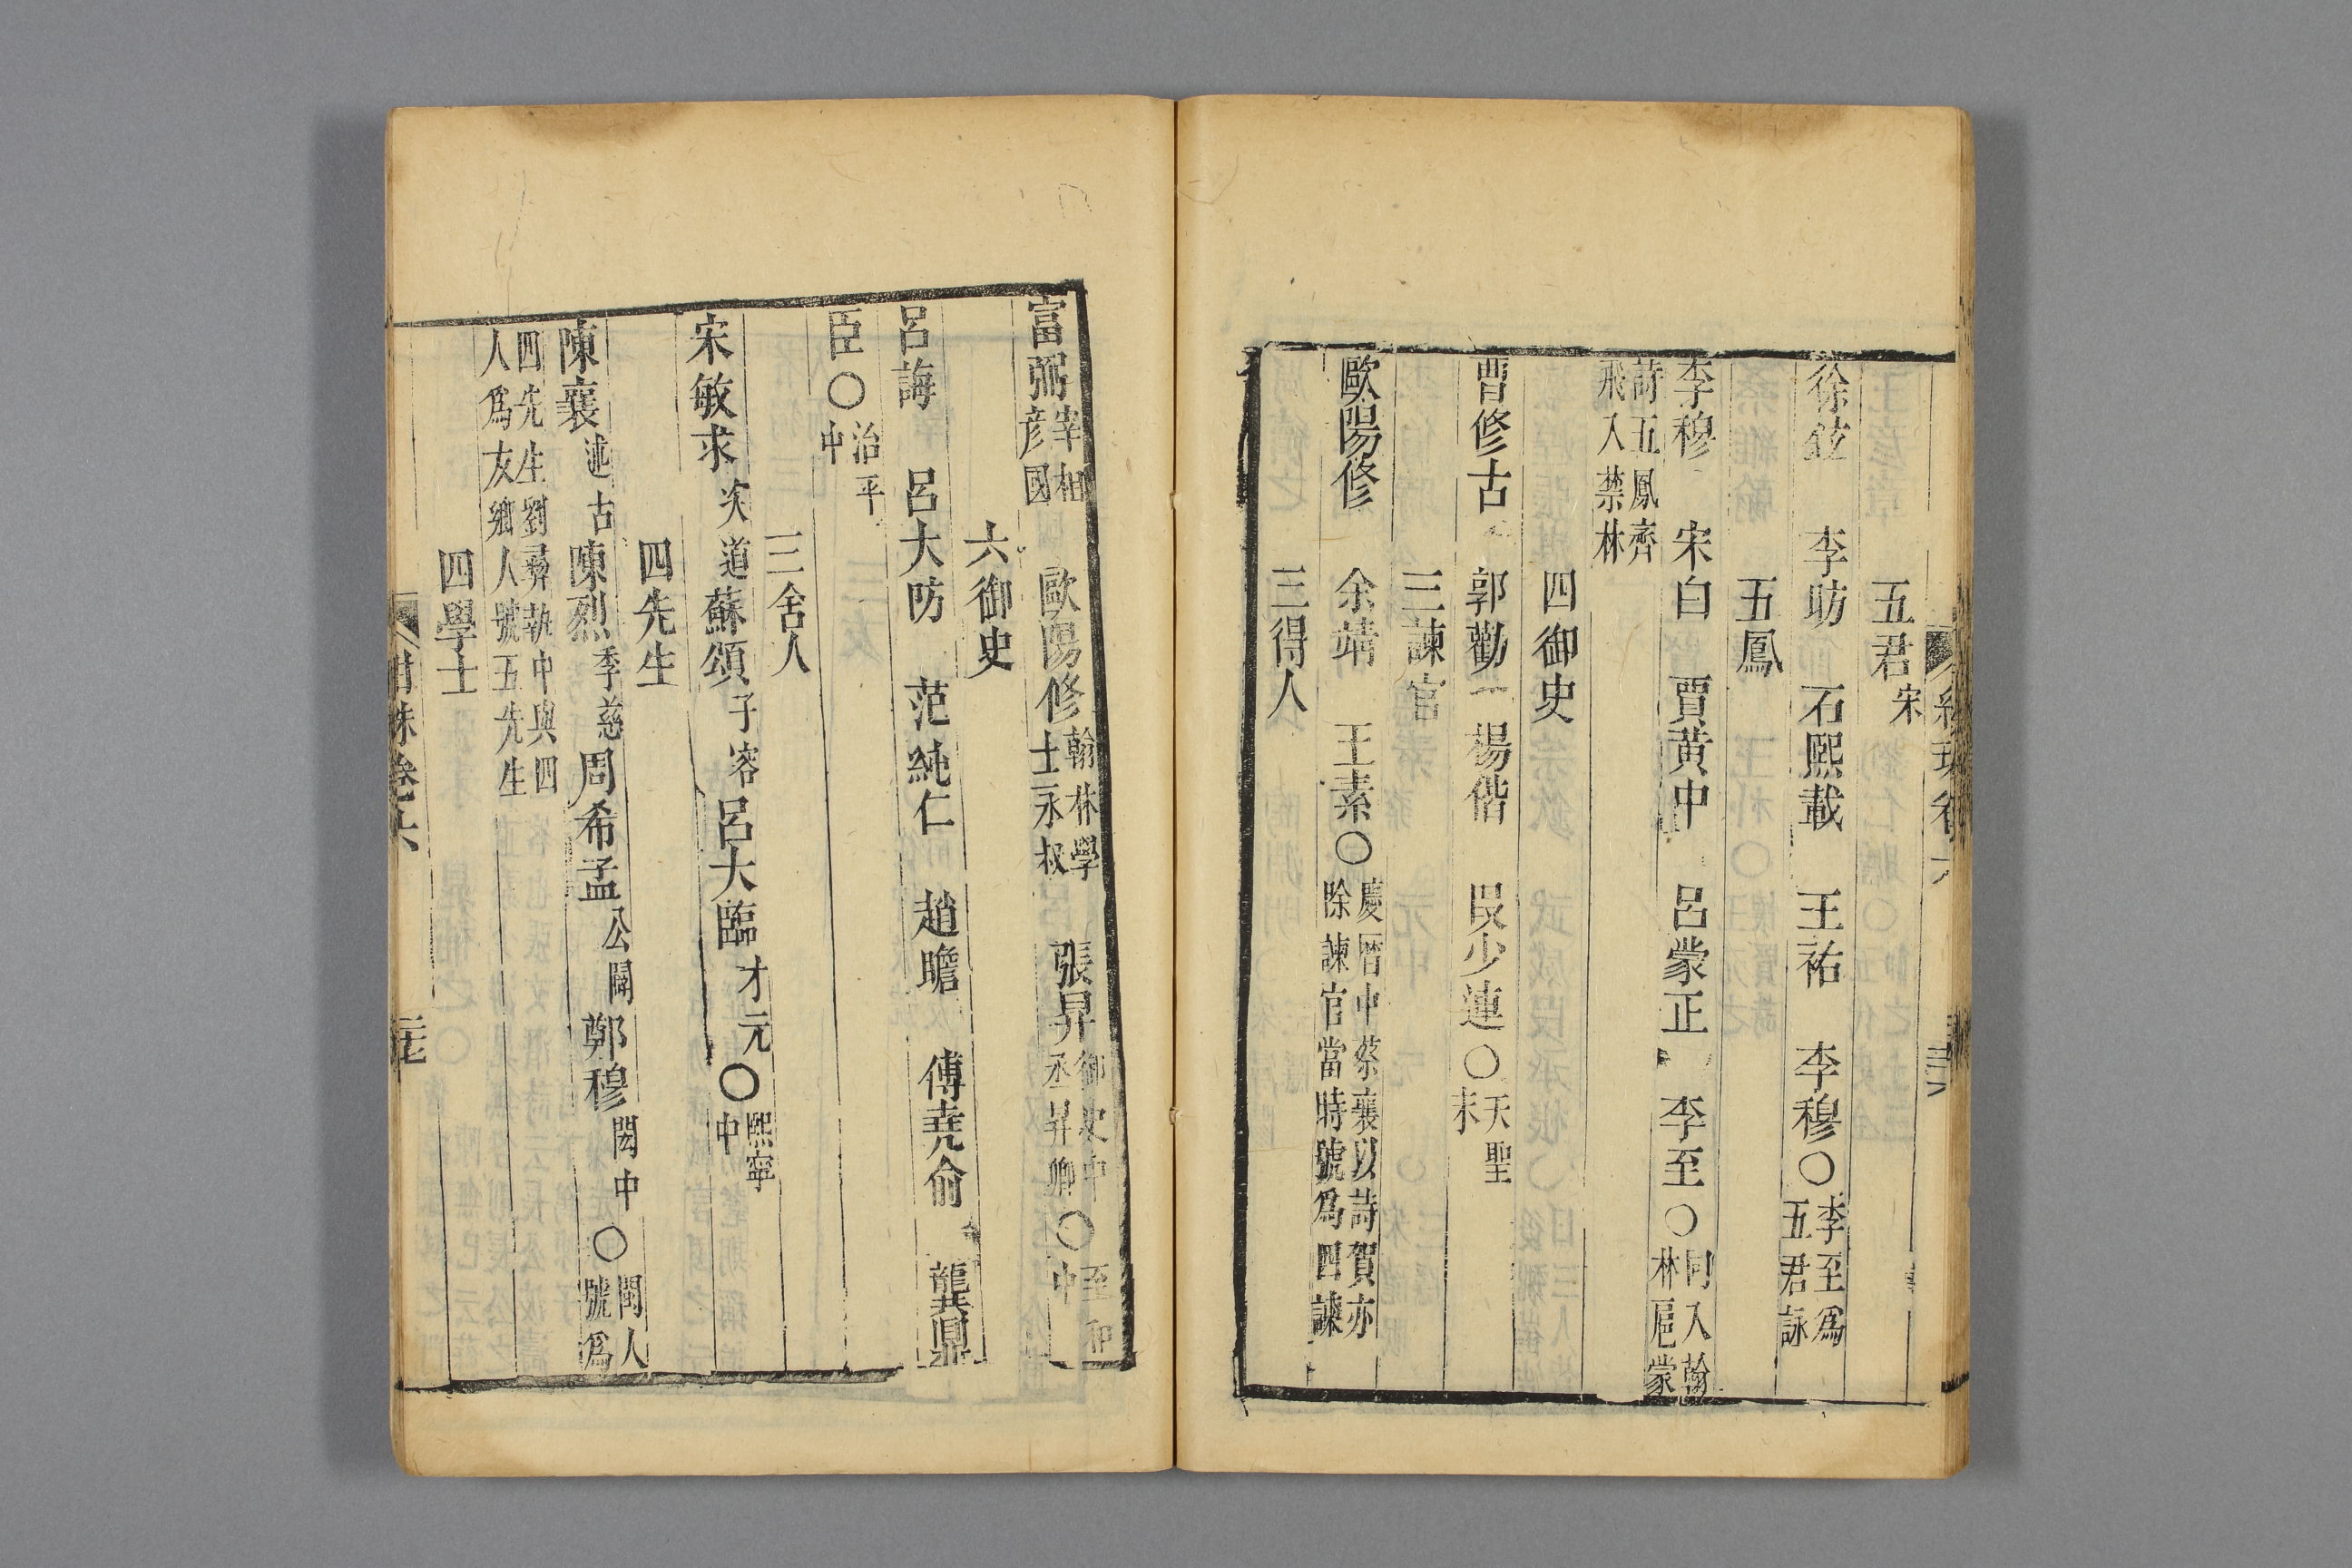 五君宋
徐鉉 李昉 石熙載 王祐 李穆〇李至爲五君詠
五鳳
李穆 宋白 賈黃中 呂蒙正 李至〇同入翰林扈蒙
詩五鳳齊飛入禁林
四御史
曹修古 郭勸 楊偕 段少連〇天聖末
三諫官
歐陽修 余靖 王素〇慶曆中蔡襄以詩賀亦除諫官當時號爲四諫
三得人
富弼宰相彦國 歐陽修翰林學士永叔 張昇御史中丞昇卿〇至和中
六御史
呂誨 呂大防 范純仁 趙瞻 傅堯俞 龔鼎
臣〇治平中
三舍人
宋敏求次道蘇頌子容呂大臨才元〇熙寧中
四先生
陳襄述古陳烈季慈周希孟公闢鄭穆閎中〇閩人號爲
四先生劉彝執中與四人爲友鄉人號五先生
四學士